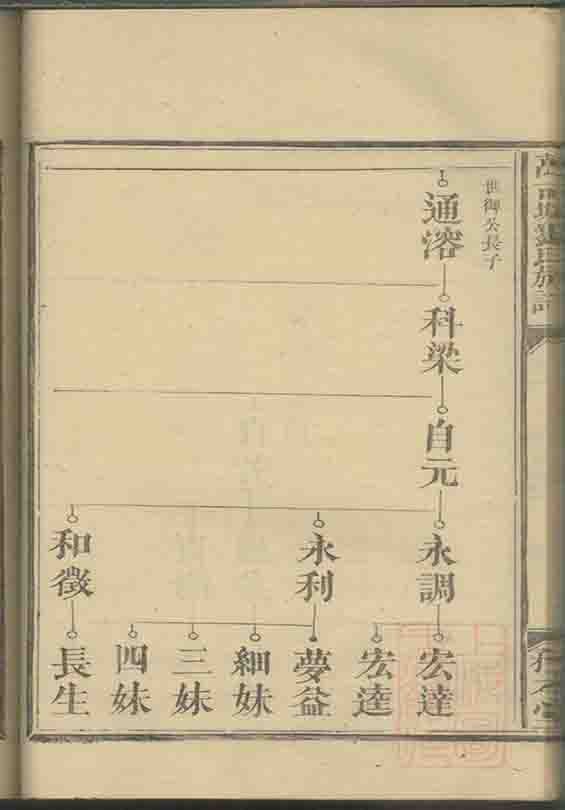 世御公長子
通溶
科梁
自元
永調
宏達
宏達
永利
夢益
細妹
三妹
四妹
和徵
長生